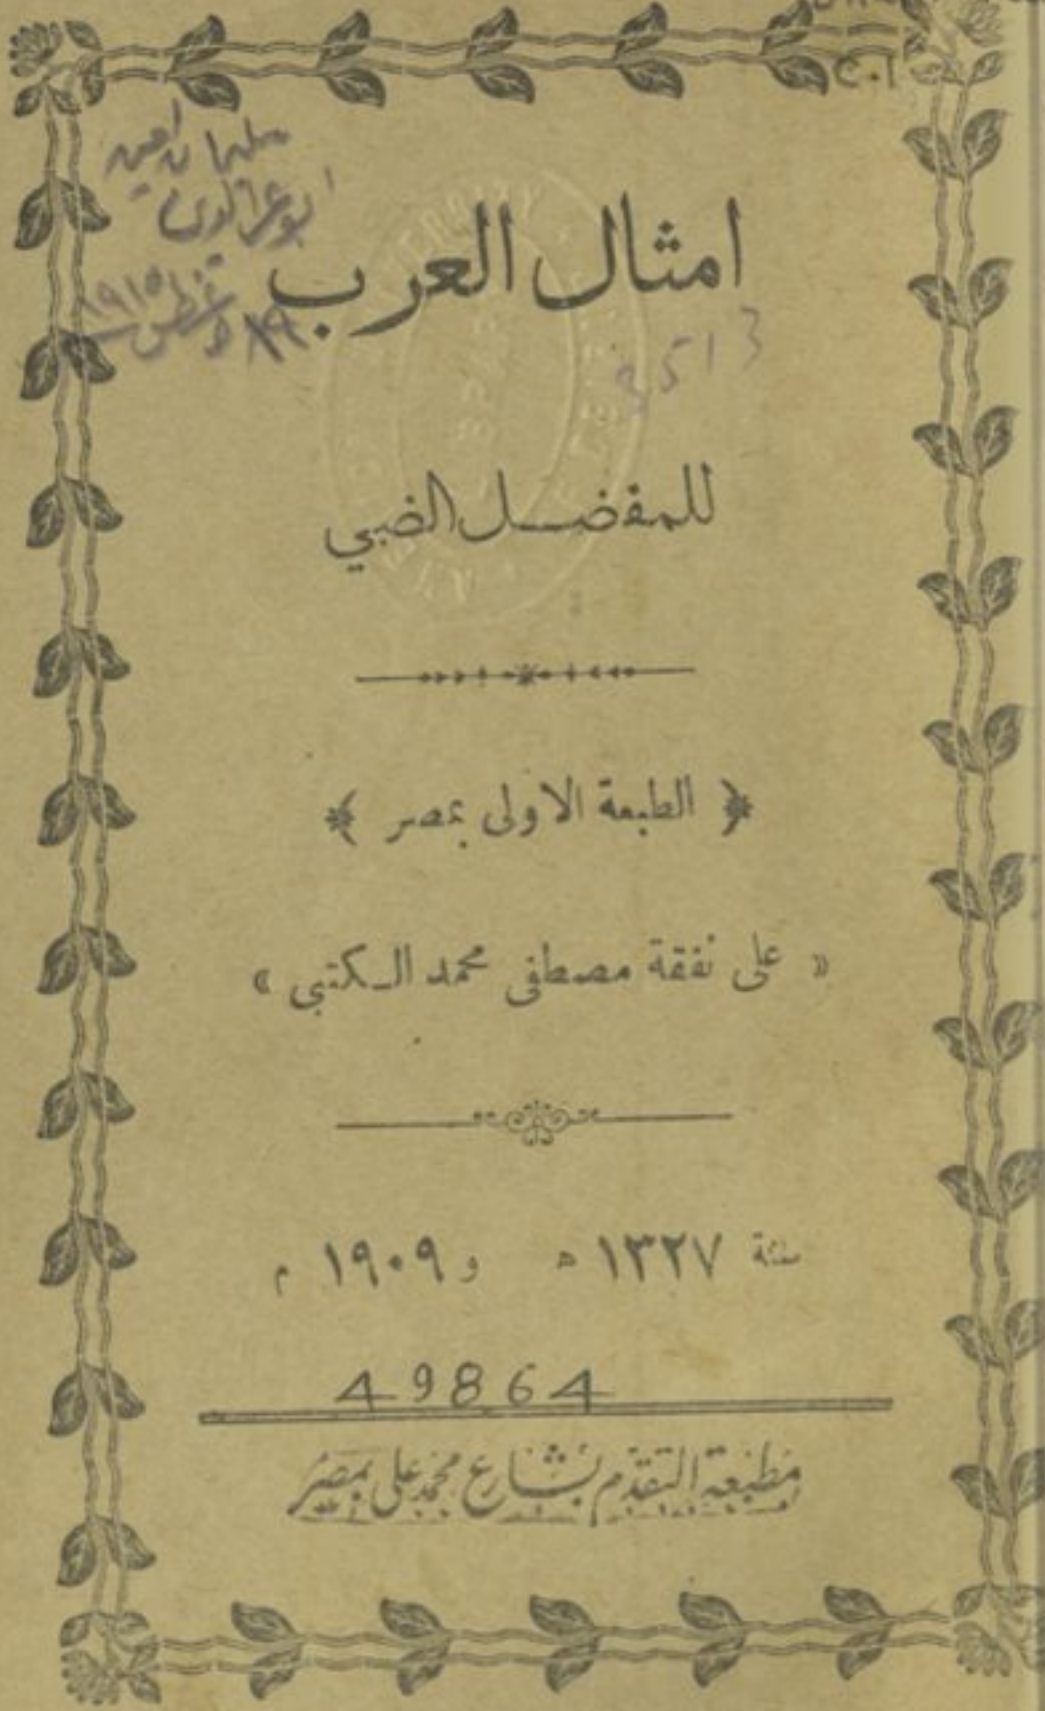 امثال العرب
8513
للمفضل الضبي
﴿ الطبعة الاولى بمصر ﴾
« على نفقة مصطفى محمد الكتبي »
سنة ١٣٢٧ ه و ١٩٠٩ م
49864
مطبعة التقدم بشارع محمد علي بمصر